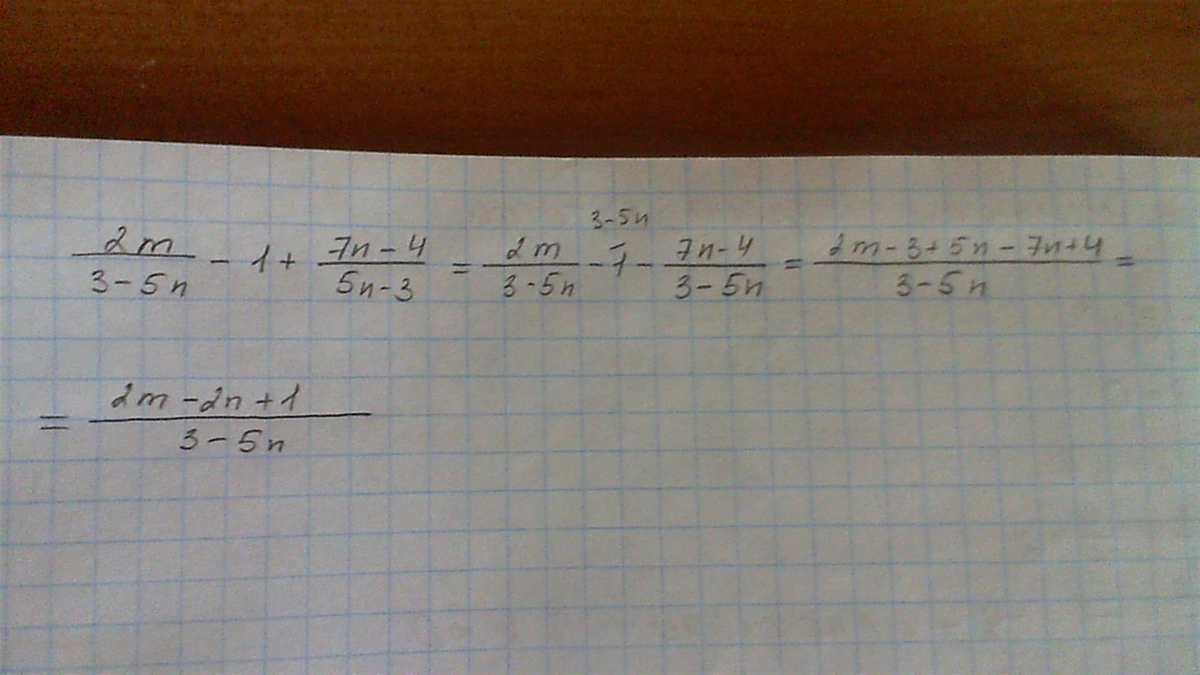 2m/(3-5n) - 1 + (7n-4)/(5n-3) = 2m/(3-5n) - 1^(3-5n) - (7n-4)/(3-5n) = (2m-3+5n-7n+4)/(3-5n) =
= (2m-2n+1)/(3-5n)